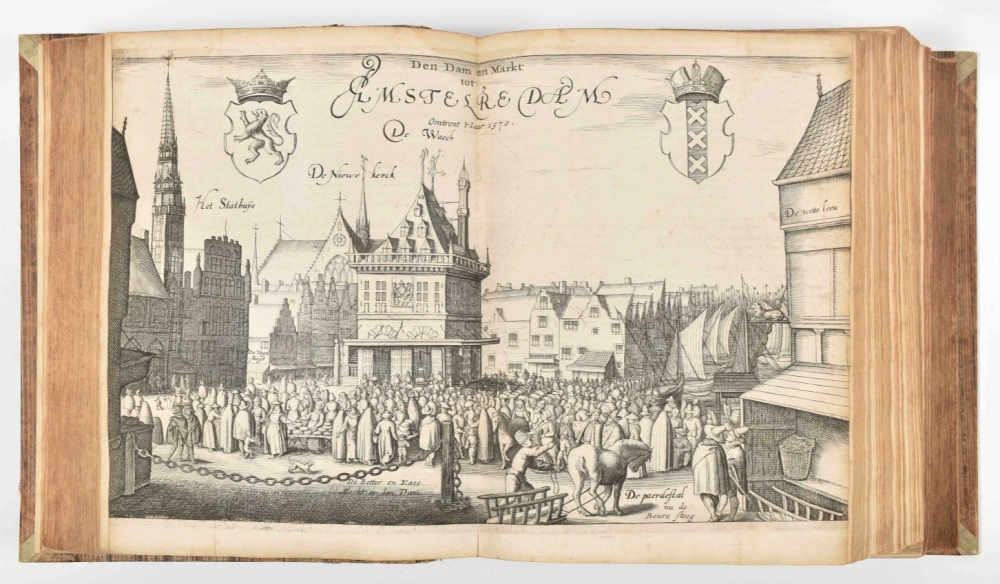 Den Dam en Markt
tot
AMSTELREDAM
Omtrent 't Iaer 1570.
De Waech
De Niewe kerck
Het Stathuys
De witte leeu
De Botter en Kaes
Marckt op den Dam
De paerdestal
nu de
Beurs steeg